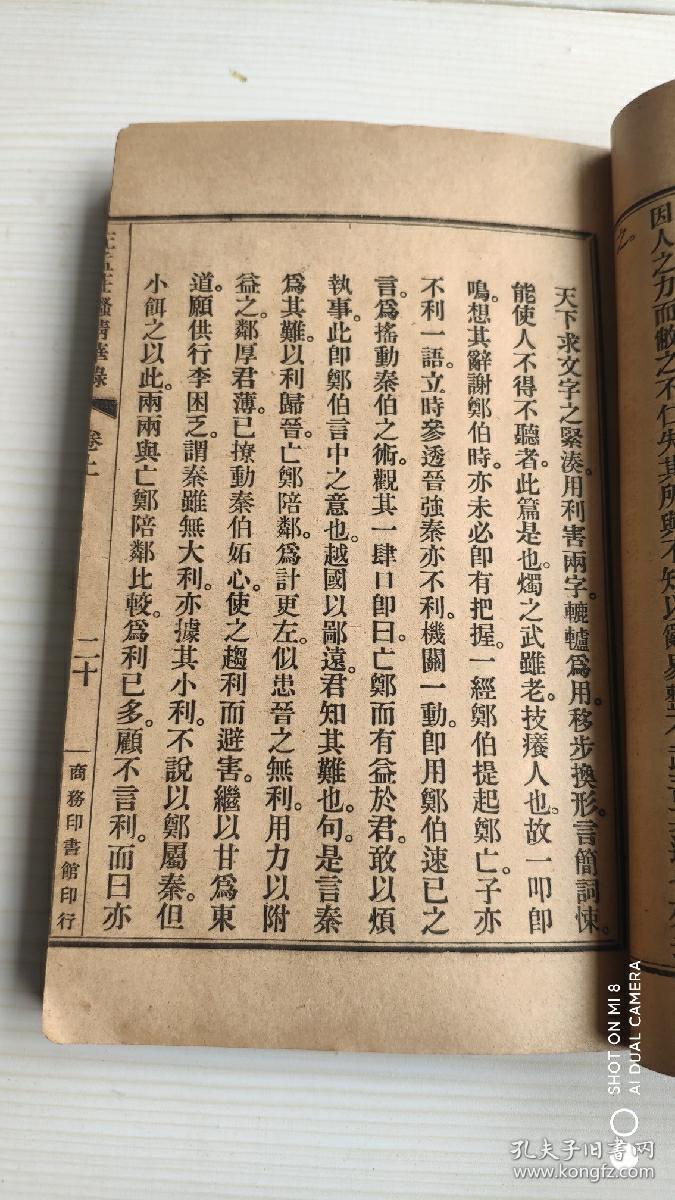 因人之力而敝之不仁失其所與不知以亂易整不武吾
天下求文字之緊湊。用利害兩字。轆轤爲用。移步換形。言簡詞悚。
能使人不得不聽者。此篇是也。燭之武雖老。技癢人也。故一叩即
鳴。想其辭謝鄭伯時。亦未必即有把握。一經鄭伯提起鄭亡。子亦
不利一語。立時參透晉強秦亦不利。機關一動。即用鄭伯速已之
言。爲搖動秦伯之術。觀其一肆口即曰。亡鄭而有益於君。敢以煩
執事。此即鄭伯言中之意也。越國以鄙遠。君知其難也。句。是言秦
爲其難。以利歸晉。亡鄭陪鄰。爲計更左。似患晉之無利。用力以附
益之。鄰厚君薄。已撩動秦伯妬心。使之趨利而避害。繼以甘爲東
道。願供行李困乏。謂秦雖無大利。亦據其小利。不說以鄭屬秦。但
小餌之以此。兩兩與亡鄭陪鄰比較。爲利已多。顧不言利。而曰亦
莊騷精華錄 卷上 二十 商務印書館印行
SHOT ON MI 8
AI DUAL CAMERA
孔夫子旧书网
www.kongfz.com